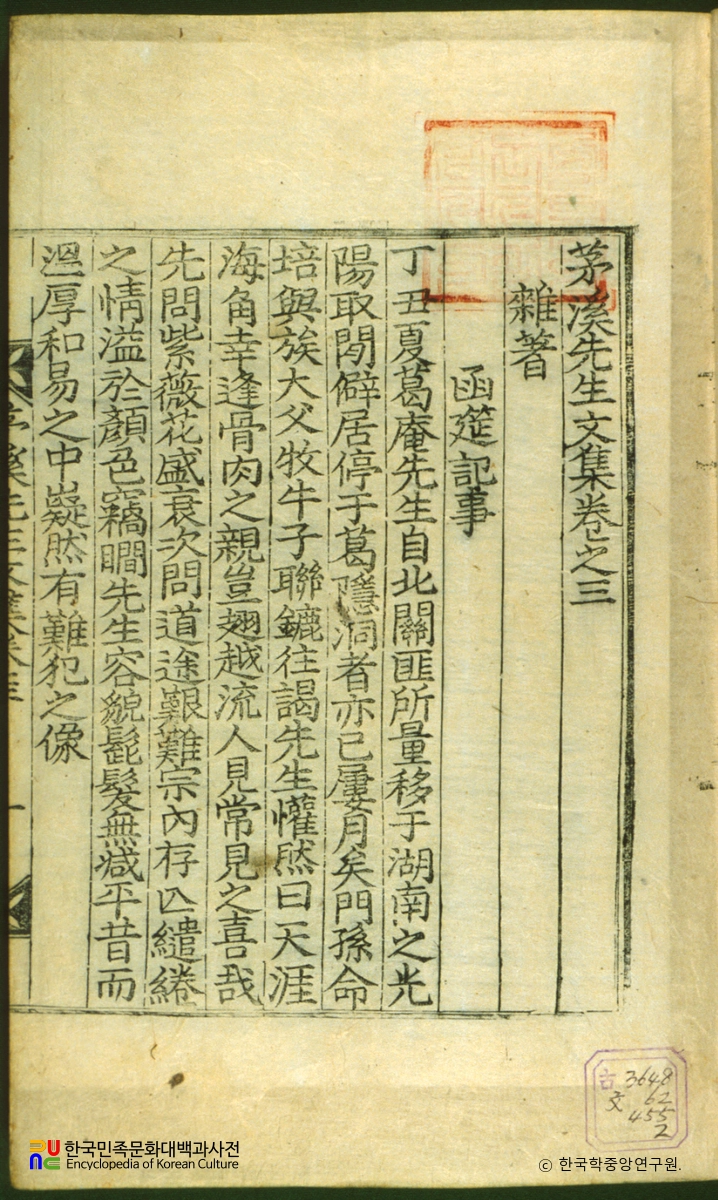 茅溪先生文集卷之三
雜著
函筵記事
丁丑夏葛庵先生自北關匪所量移于湖南之光
陽取閒僻居停于葛隱洞者亦已屢月矣門孫命
培與族大父牧牛子聯鑣往謁先生懽然曰天涯
海角幸逢骨肉之親豈翅越流人見常見之喜哉
先問紫薇花盛衰次問道途艱難宗內存亾繾綣
之情溢於顏色竊瞷先生容貌髭髮無减平昔而
溫厚和易之中嶷然有難犯之像
茅溪先生文集卷三
一
古 3648
文 62
455
2
한국민족문화대백과사전
Encyclopedia of Korean Culture
© 한국학중앙연구원.